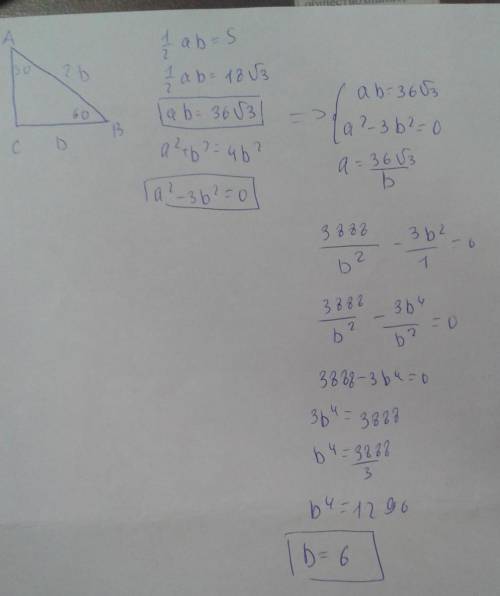 A
30
2b
60
B
C
b
1/2 ab = S
1/2 ab = 18√3
ab = 36√3
a² + b² = 4b²
a² - 3b² = 0
=> { ab = 36√3
a² - 3b² = 0
a = 36√3/b
3888/b² - 3b²/1 = 0
3888/b² - 3b⁴/b² = 0
3888 - 3b⁴ = 0
3b⁴ = 3888
b⁴ = 3888/3
b⁴ = 1296
b = 6